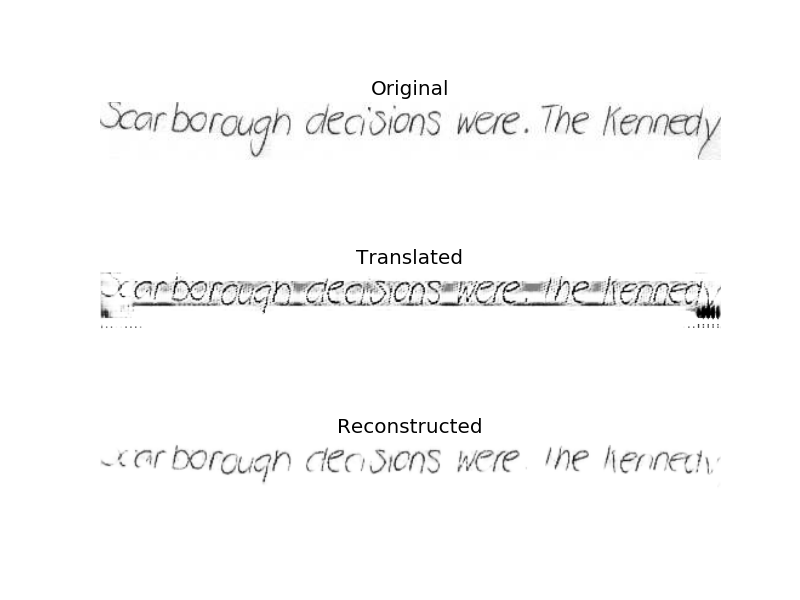 Original
Scarborough decisions were. The Kennedy
Translated
Scarborough decisions were. The Kennedy
Reconstructed
Scarborough decisions were The Kennedy